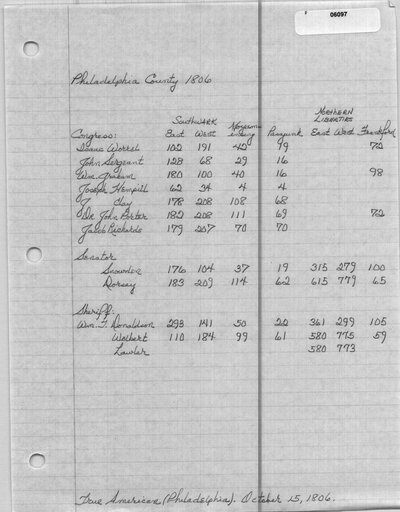 06097
Philadelphia County 1806
Southwark Moyamensing Passyunk Northern Liberties
Congress: East West East West Frankford
Isaac Worrel 102 191 42 99 72
John Sergeant 128 68 29 16
Wm. Graham 180 100 40 16 98
Joseph Hemphill 62 34 4 4
J Clay 178 208 108 68
Dr. John Porter 182 208 111 69 72
Jacob Richards 179 207 70 70
Senator
Snowden 176 104 37 19 315 279 100
Dorsey 183 209 114 62 615 779 65
Sheriff:
Wm. T. Donaldson 293 141 50 22 361 299 105
Wolbert 110 184 99 61 580 775 59
Lawler 580 773
True American (Philadelphia). October 15, 1806.